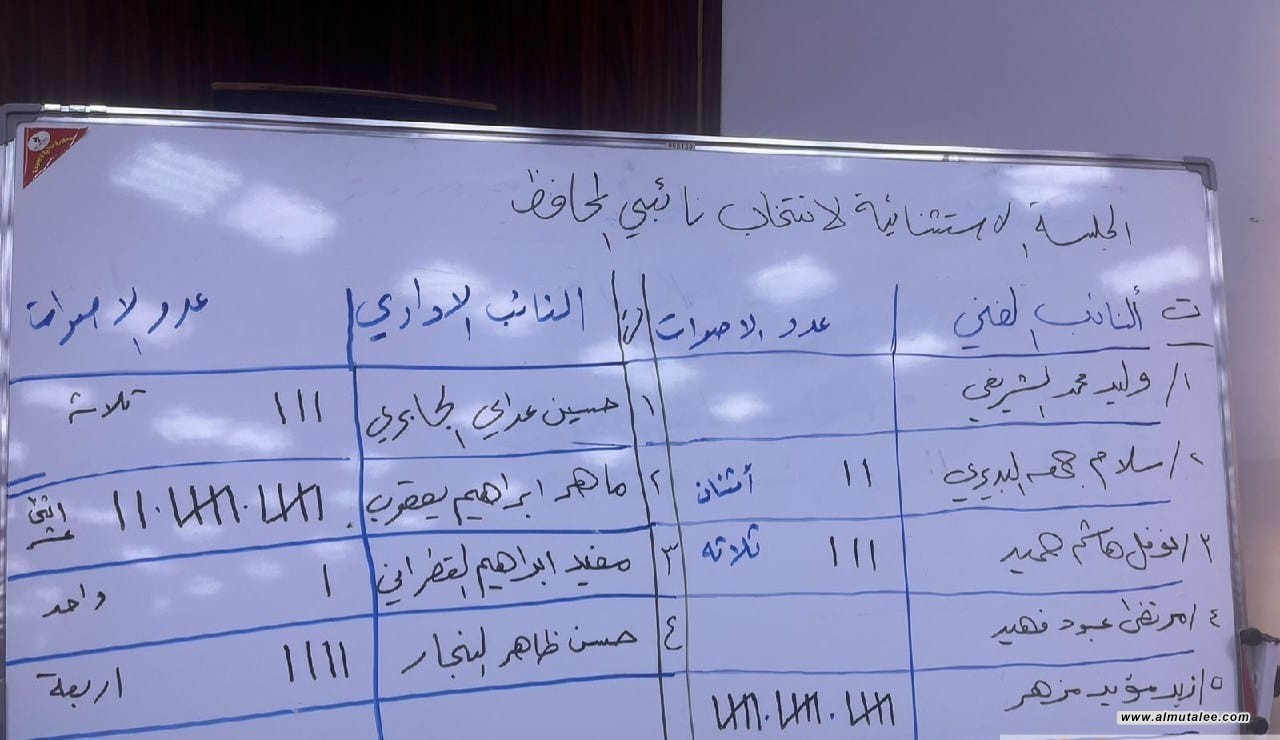 الجلسة الاستثنائية لانتخاب نائبي المحافظ
ت النائب الفني عدد الاصوات
١/ وليد محمد الشريفي
٢/ سلام جمعه البديري ١١ أثنان
٣/ نوفل هاشم حميد ١١١ ثلاثه
٤/ مرتضى عبود فهيد
٥/ زيد مؤيد مزهر
ت النائب الاداري عدد الاصوات
١ حسين عداي الجابري ١١١ ثلاثة
٢ ماهر ابراهيم يعقوب اثنى عشر
٣ مفيد ابراهيم القطراني ١ واحد
٤ حسن ظاهر النجار ١١١١ اربعة
www.almutalee.com